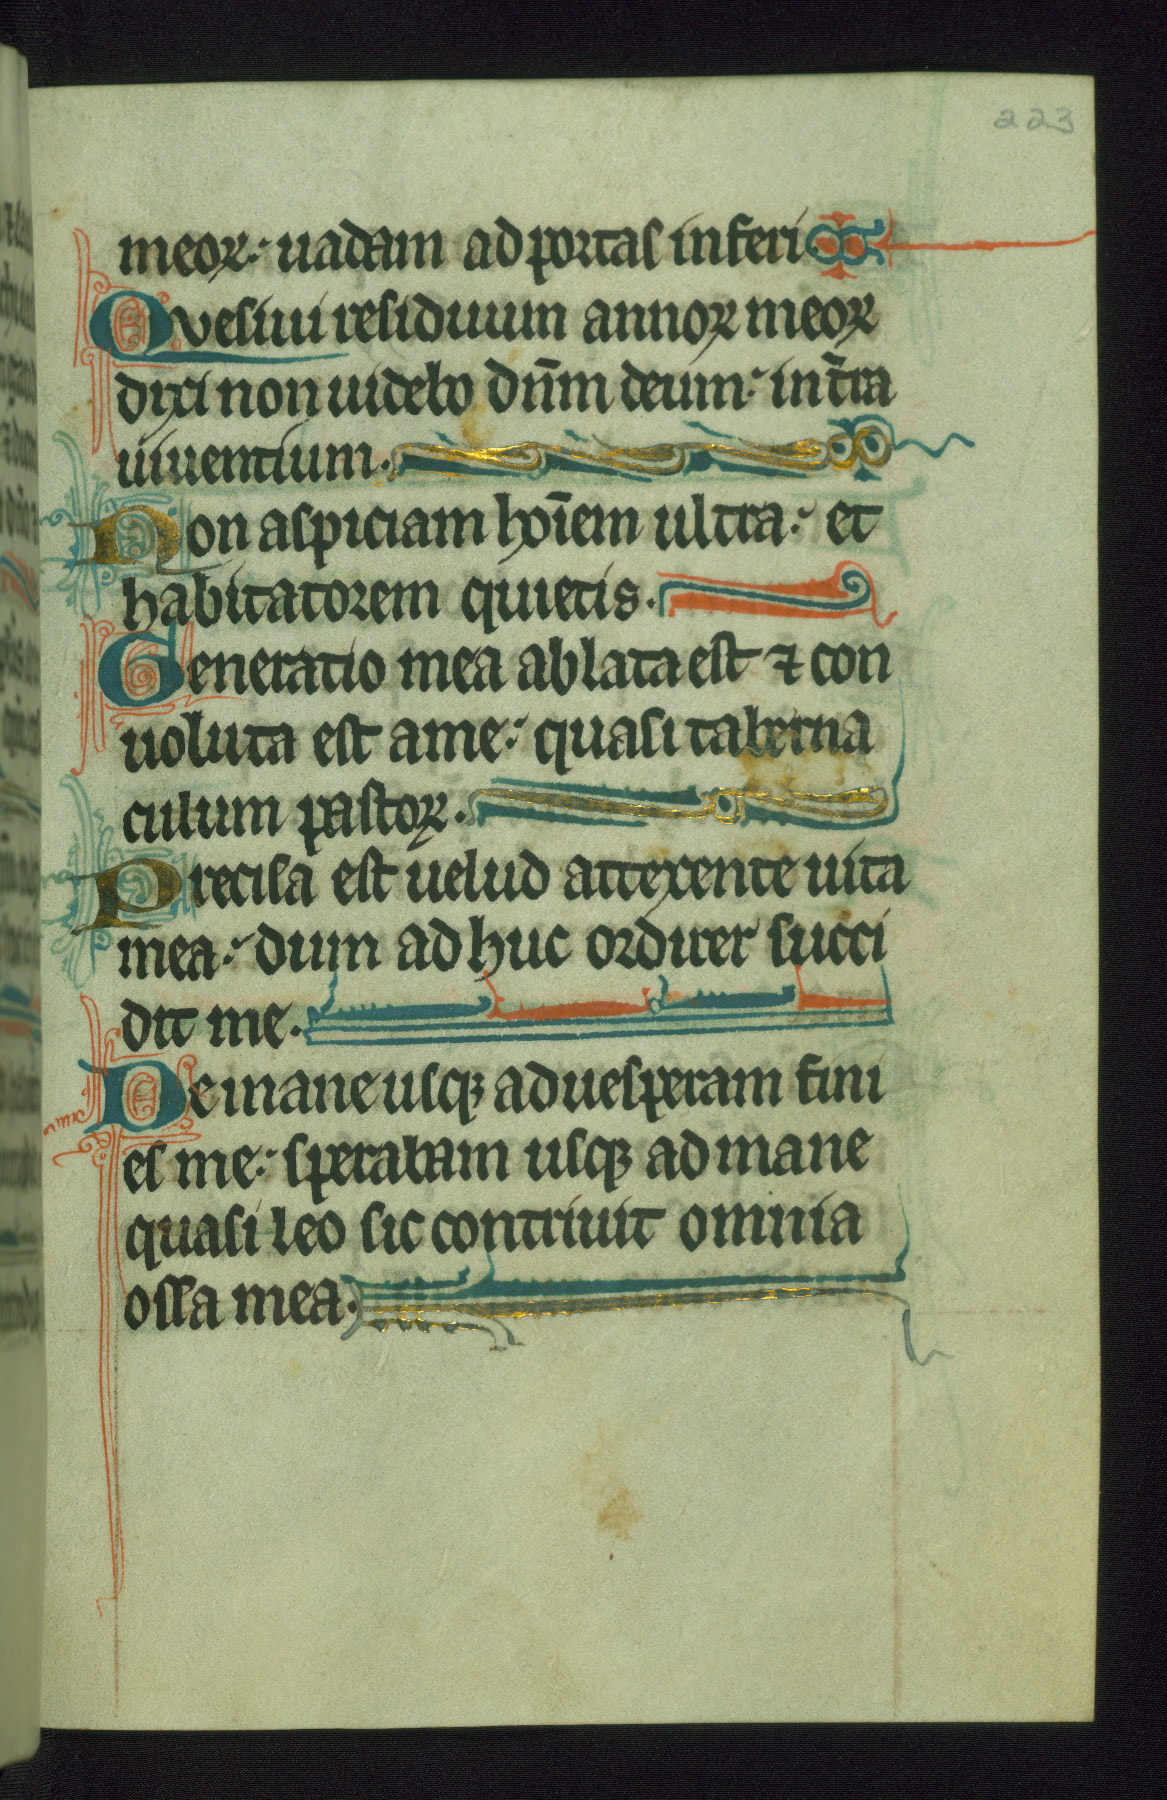 223
meoꝝ: uadam ad portas inferi
Quesiui residuum annoꝝ meoꝝ
dixi non uidebo dn̄m deum: in t̄ra
uiuentium.
Non aspiciam hoīem ultra: et
habitatorem quietis.
Generatio mea ablata est ⁊ con
uoluta est a me: quasi taberna
culum pastoꝝ.
Precisa est uelud attexente uita
mea: dum ad huc ordirer succi
dit me.
De mane usqꝫ ad uesperam fini
es me: sperabam usqꝫ ad mane
quasi leo sic contriuit omnia
ossa mea.